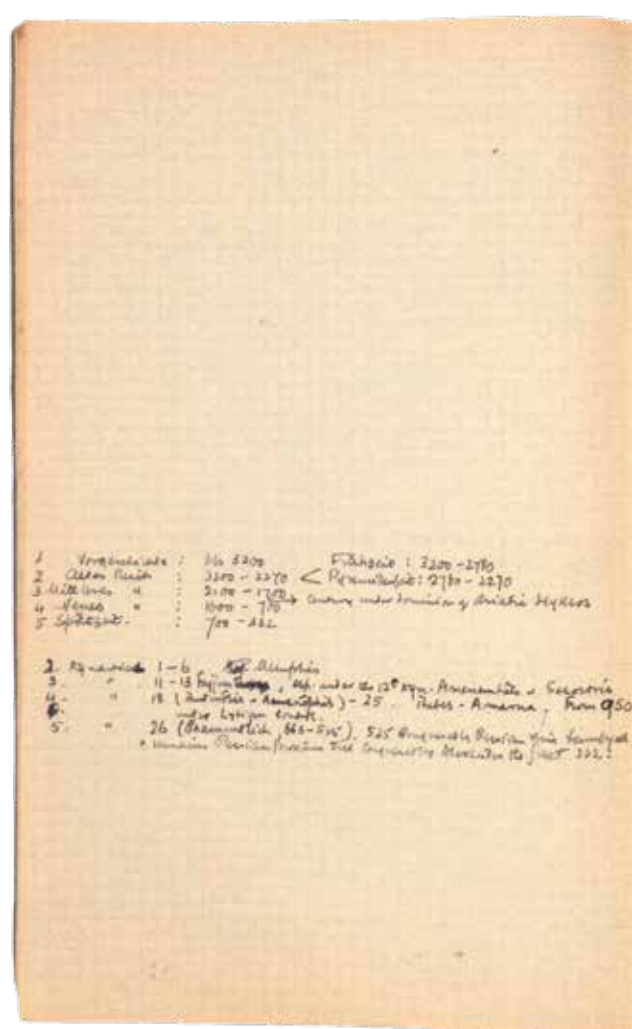 1 Vorgeschichte : bis 3200 Frühzeit : 3200 - 2780
2 Altes Reich : 3200 - 2270 < Pyramidenzeit : 2780 - 2270
3 Mittleres " : 2100 - 1700 → Century under dominion of Asiatic Hyksos
4 Neues " : 1600 - 700
5 Spätzeit - : 700 - 332
2. Dynastied 1-6 Memphis
3. " 11-13 , esp. under the 12th Dyn. Amenemhets & Sesostris
4. " 18 ( Amenophis) - 25 . Thebes - Amarna , from 950
6. under Libyan
5. " 26 (Psammetich , 663-525). 525 Conquered by Persian King Kambyses
& remains Persian province till conquered by Alexander the great 332 !